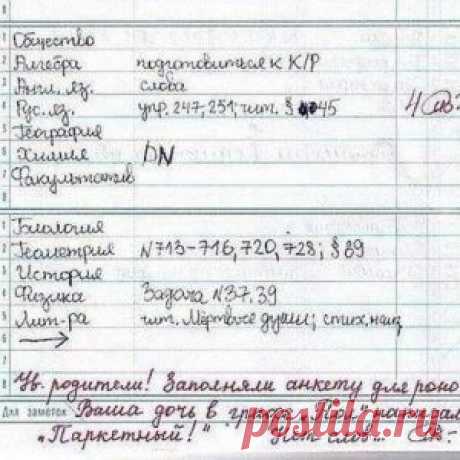 1 Общество
2 Алгебра подготовиться к К/Р
3 Англ. яз. слова
4 Рус. яз. упр. 247, 251; чит. § 45
5 География
6 Химия DN
7 Факультатив
8
1 Биология
2 Геометрия N 713-716, 720, 728; § 89
3 История
4 Физика Задача N37.39
5 Лит-ра чит. Мёртвые души; стих. наиз
6 →
7
8 Ув. родители! Заполняли анкету для роно
Для заметок Ваша дочь в графе "Пол"
„Паркетный!" Нет слов..